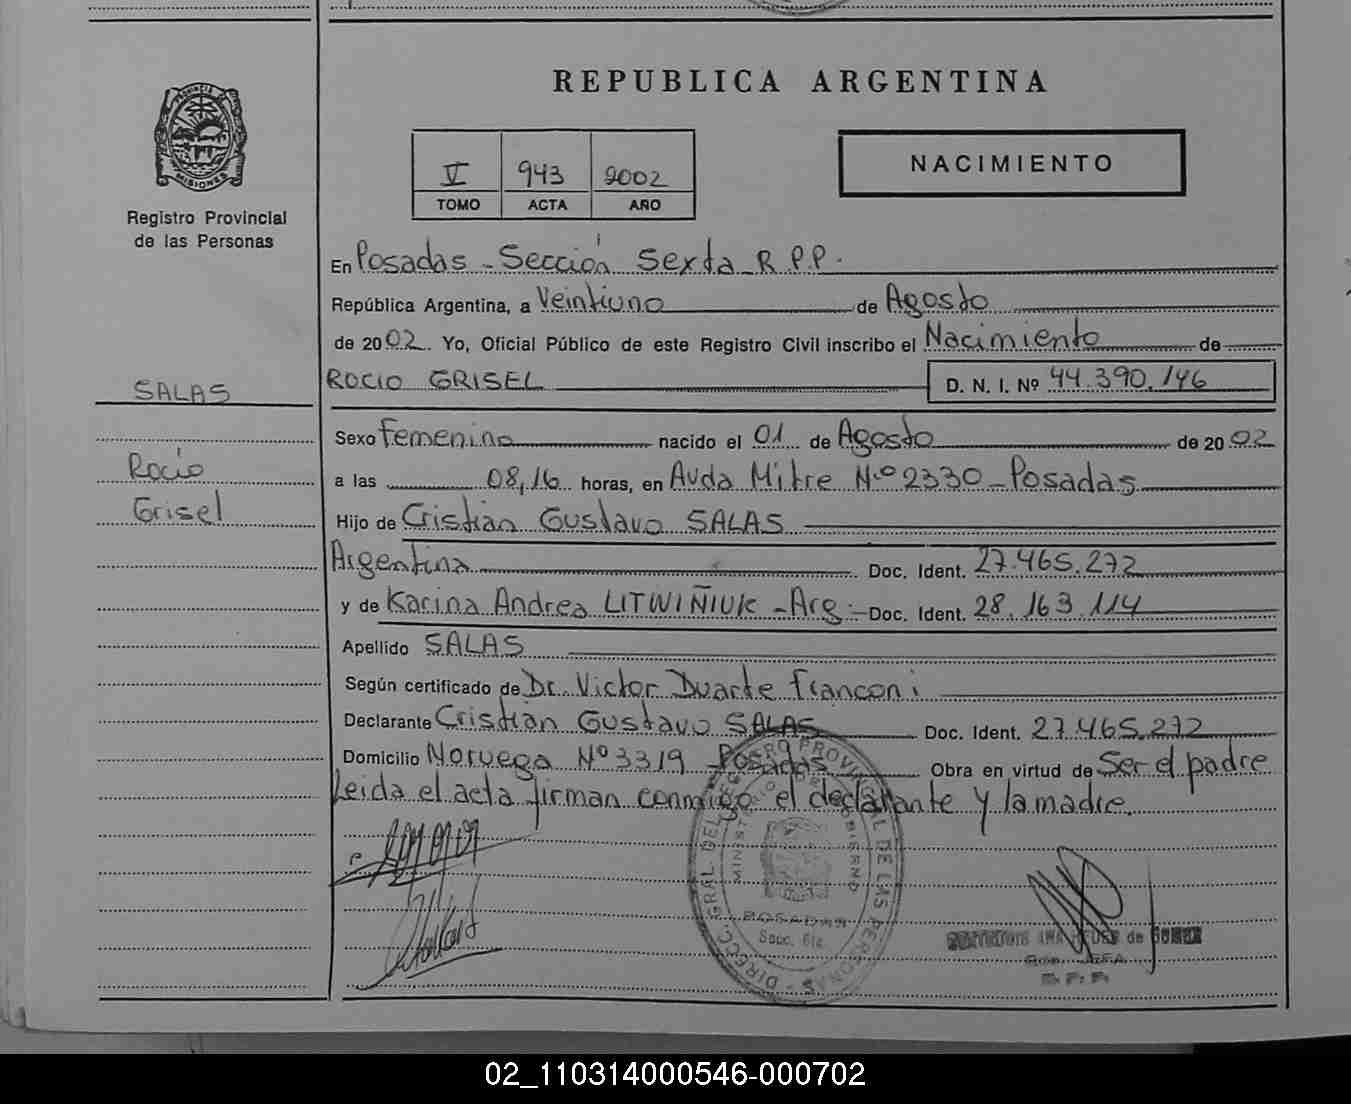 PROVINCIA
MISIONES
Registro Provincial
de las Personas
SALAS
Rocío
Grisel
REPUBLICA ARGENTINA
V 943 2002
TOMO ACTA AÑO
NACIMIENTO
En Posadas - Sección Sexta R.P.P.
República Argentina, a Veintiuno de Agosto
de 2002. Yo, Oficial Público de este Registro Civil inscribo el Nacimiento de
ROCIO GRISEL D. N. I. Nº 44.390.146
Sexo Femenino nacido el 01 de Agosto de 2002
a las 08,16 horas, en Avda Mitre Nº 2330 - Posadas
Hijo de Cristian Gustavo SALAS
Argentina Doc. Ident. 27.465.272
y de Karina Andrea LITWIÑIUK - Arg - Doc. Ident. 28.163.114
Apellido SALAS
Según certificado de Dr. Victor Duarte Franconi
Declarante Cristian Gustavo SALAS Doc. Ident. 27.465.272
Domicilio Noruega Nº 3319 - Posadas Obra en virtud de Ser el padre
Leida el acta firman conmigo el declarante y la madre.
DIRECC. GRAL. DEL REGISTRO PROVINCIAL DE LAS PERSONAS
MINISTERIO GOBIERNO
POSADAS
Secc. 6ta.
02_110314000546-000702